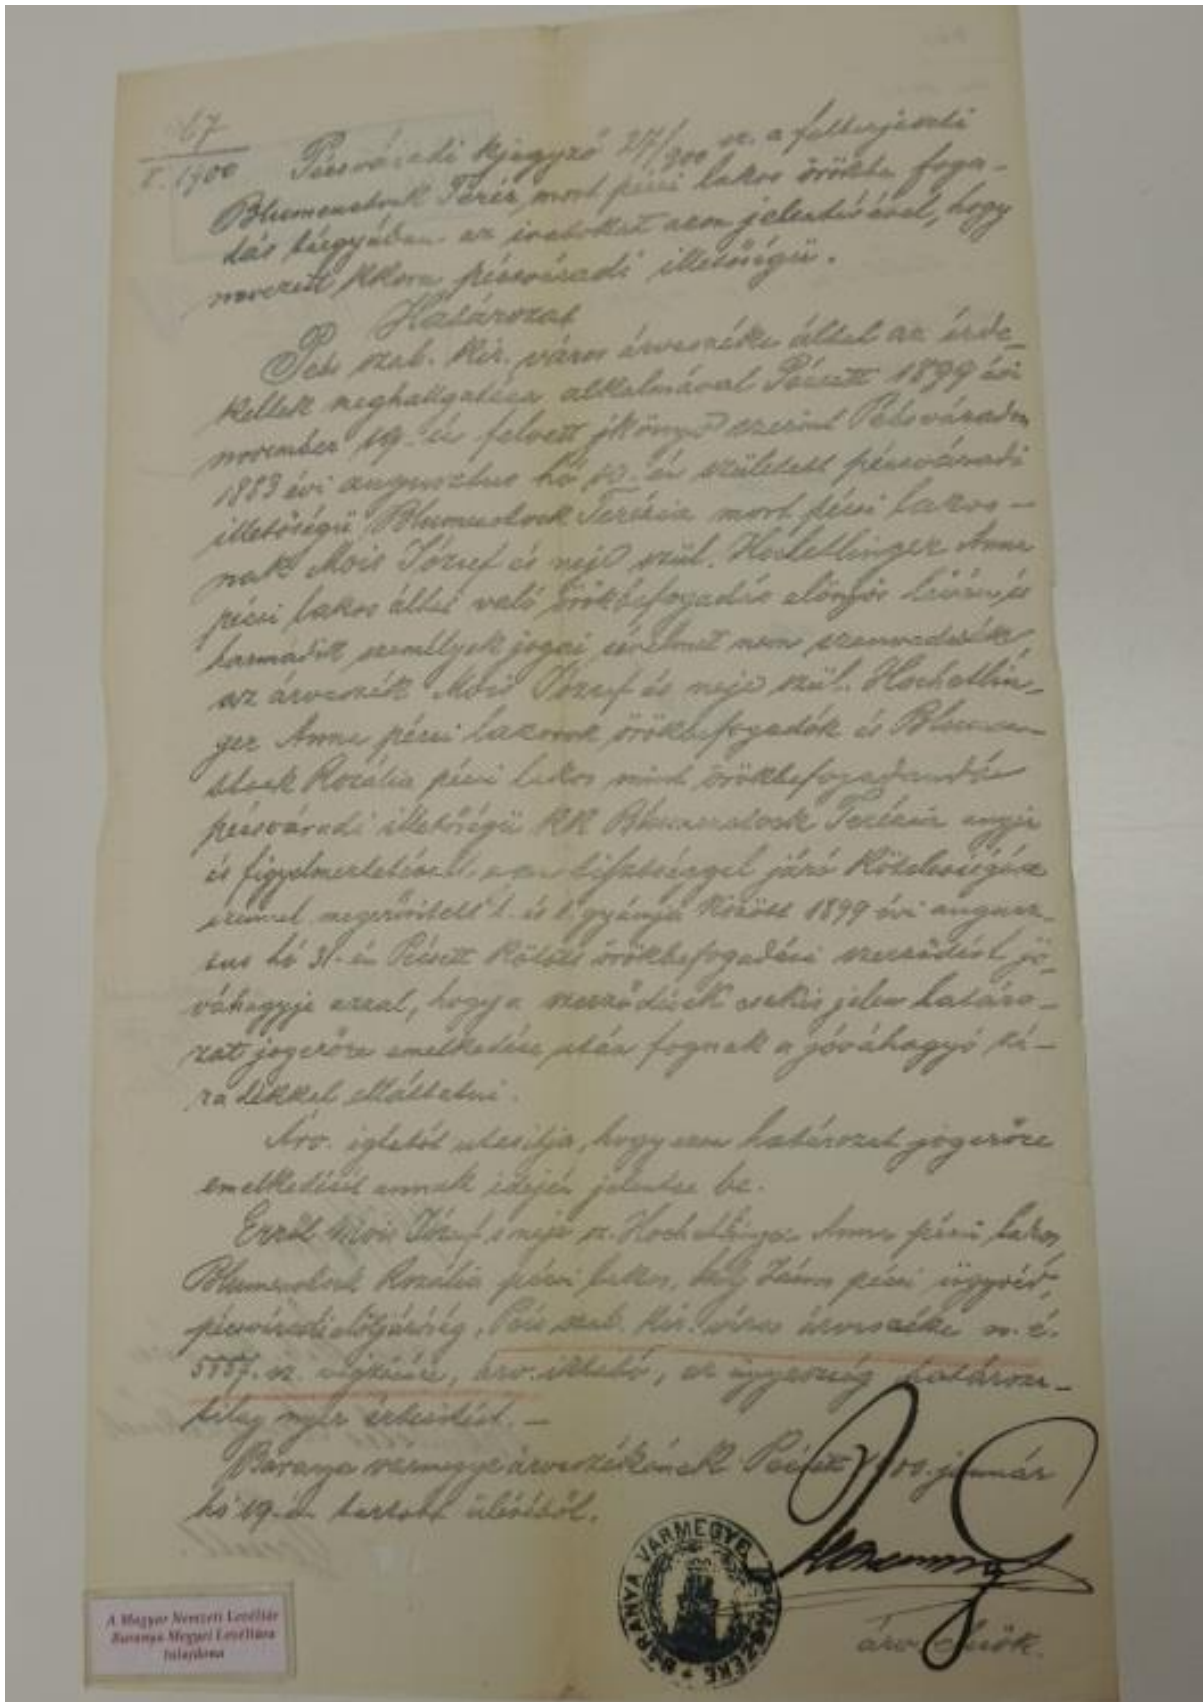 67
1900
Pécsváradi kjegyző 27/900 sz. a felterjeszti
Blumenstock Teréz, mort pécsi lakos örökbe foga-
dás tárgyában az iratokat azon jelentésével, hogy
nevezett kkorú pécsváradi illetőségű.
Határozat
Pécs szab. kir. város árvaszéke által az érde-
keltek meghallgatása alkalmával Pécsett 1899 évi
november 19-én felvett jkönyv szerint Pécsváradon
1883 évi augusztus hó én született pécsváradi
illetőségű Blumenstock Terézia mort pécsi lakos-
nak Mois József és neje szül. Hochetlinger Anna
pécsi lakos által való örökbefogadás előnyös lévén és
harmadik személyek jogai sérelmet nem szenvedvén
az árvaszék Mois József és neje szül. Hochetlin-
ger Anna pécsi lakosok örökbefogadók és Blumen-
stock Rozália pécsi lakos mint örökbefogadandó
pécsváradi illetőségű kk Blumenstock Terézia anyja
és figyelmeztetésével azon tisztséggel járó kötelességére
ezennel megerősített t. és t. gyámja között 1899 évi augusz-
tus hó 31-én Pécsett kötött örökbefogadási szerződést jó-
váhagyja azzal, hogy a szerződések csakis jelen határo-
zat jogerőre emelkedése után fognak a jóváhagyó zá-
radékkal elláttatni.
Árv. igtatót utasítja, hogy ezen határozat jogerőre
emelkedését annak idején jelentse be.
Erről Mois József s neje sz. Hochetlinger Anna pécsi lakos,
Blumenstock Rozália pécsi lakos, János pécsi ügyvéd,
pécsváradi elöljáróság, Pécs szab. kir. város árvaszéke m. é.
5557. sz. végzésére, árv. iktató, az ügyészség határozat-
tilag nyer értesítést. -
Baranya vármegye árvaszékének Pécsett 1900. január
hó 19-én tartott üléséből.
BARANYA VÁRMEGYE ÁRVASZÉKE
árv. elnök.
A Magyar Nemzeti Levéltár
Baranya Megyei Levéltára
tulajdona